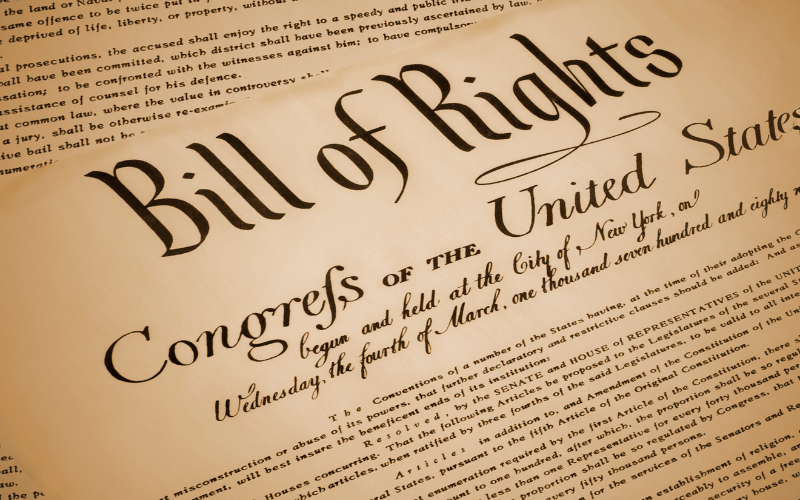 the land or Naval
same offence to be twice put in
deprived of life, liberty, or property, without
prosecutions, the accused shall enjoy the right to a speedy and public
have been committed, which district shall have been previously ascertained by law,
sation; to be confronted with the witnesses against him; to have compulsory
assistance of counsel for his defence.
common law, where the value in controversy shall
a jury, shall be otherwise re-exami
ive bail shall not be
numerati
Bill of Rights
Congreſs OF THE United States
begun and held at the City of New York, on
Wednesday, the fourth of March, one thousand seven hundred and eighty
The Conventions of a number of the States having, at the time of their adopting the
misconstruction or abuse of its powers, that further declaratory and restrictive clauses should be added: And as
ment, will best insure the beneficent ends of its institution:
Resolved, by the SENATE and HOUSE of REPRESENTATIVES of the
Houses concurring, That the following Articles be proposed to the Legislatures of the several
which articles, when ratified by three fourths of the said Legislatures, to be valid to all
Articles in addition to, and Amendment of the Constitution of the
States, pursuant to the fifth Article of the Original Constitution.
enumeration required by the first Article of the Constitution, there
amount to one hundred, after which, the proportion shall be so
less than one Representative for every forty thousand
proportion shall be so regulated by Congress, that
every fifty thousand persons.
for the services of the Senators and
establishment of religion,
peaceably to assemble, and
security of a
house,